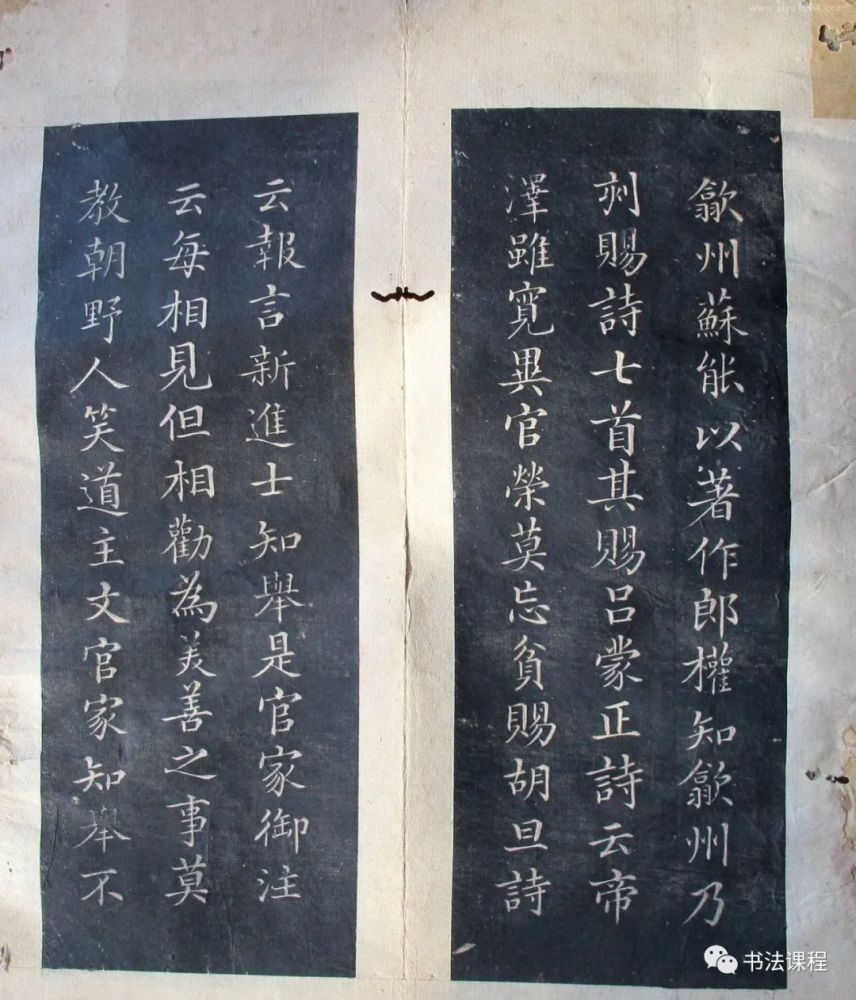 歙州蘇能以著作郎權知歙州乃
刻賜詩七首其賜呂蒙正詩云帝
澤雖寬異官榮莫忘貧賜胡旦詩
云報言新進士知舉是官家御注
云每相見但相勸為美善之事莫
教朝野人笑道主文官家知舉不
书法课程